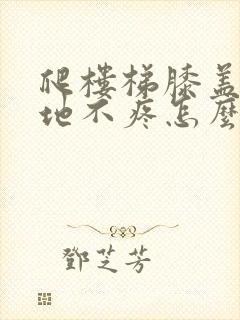 爬樓梯膝蓋
地不疼怎麼
鄧芝芳